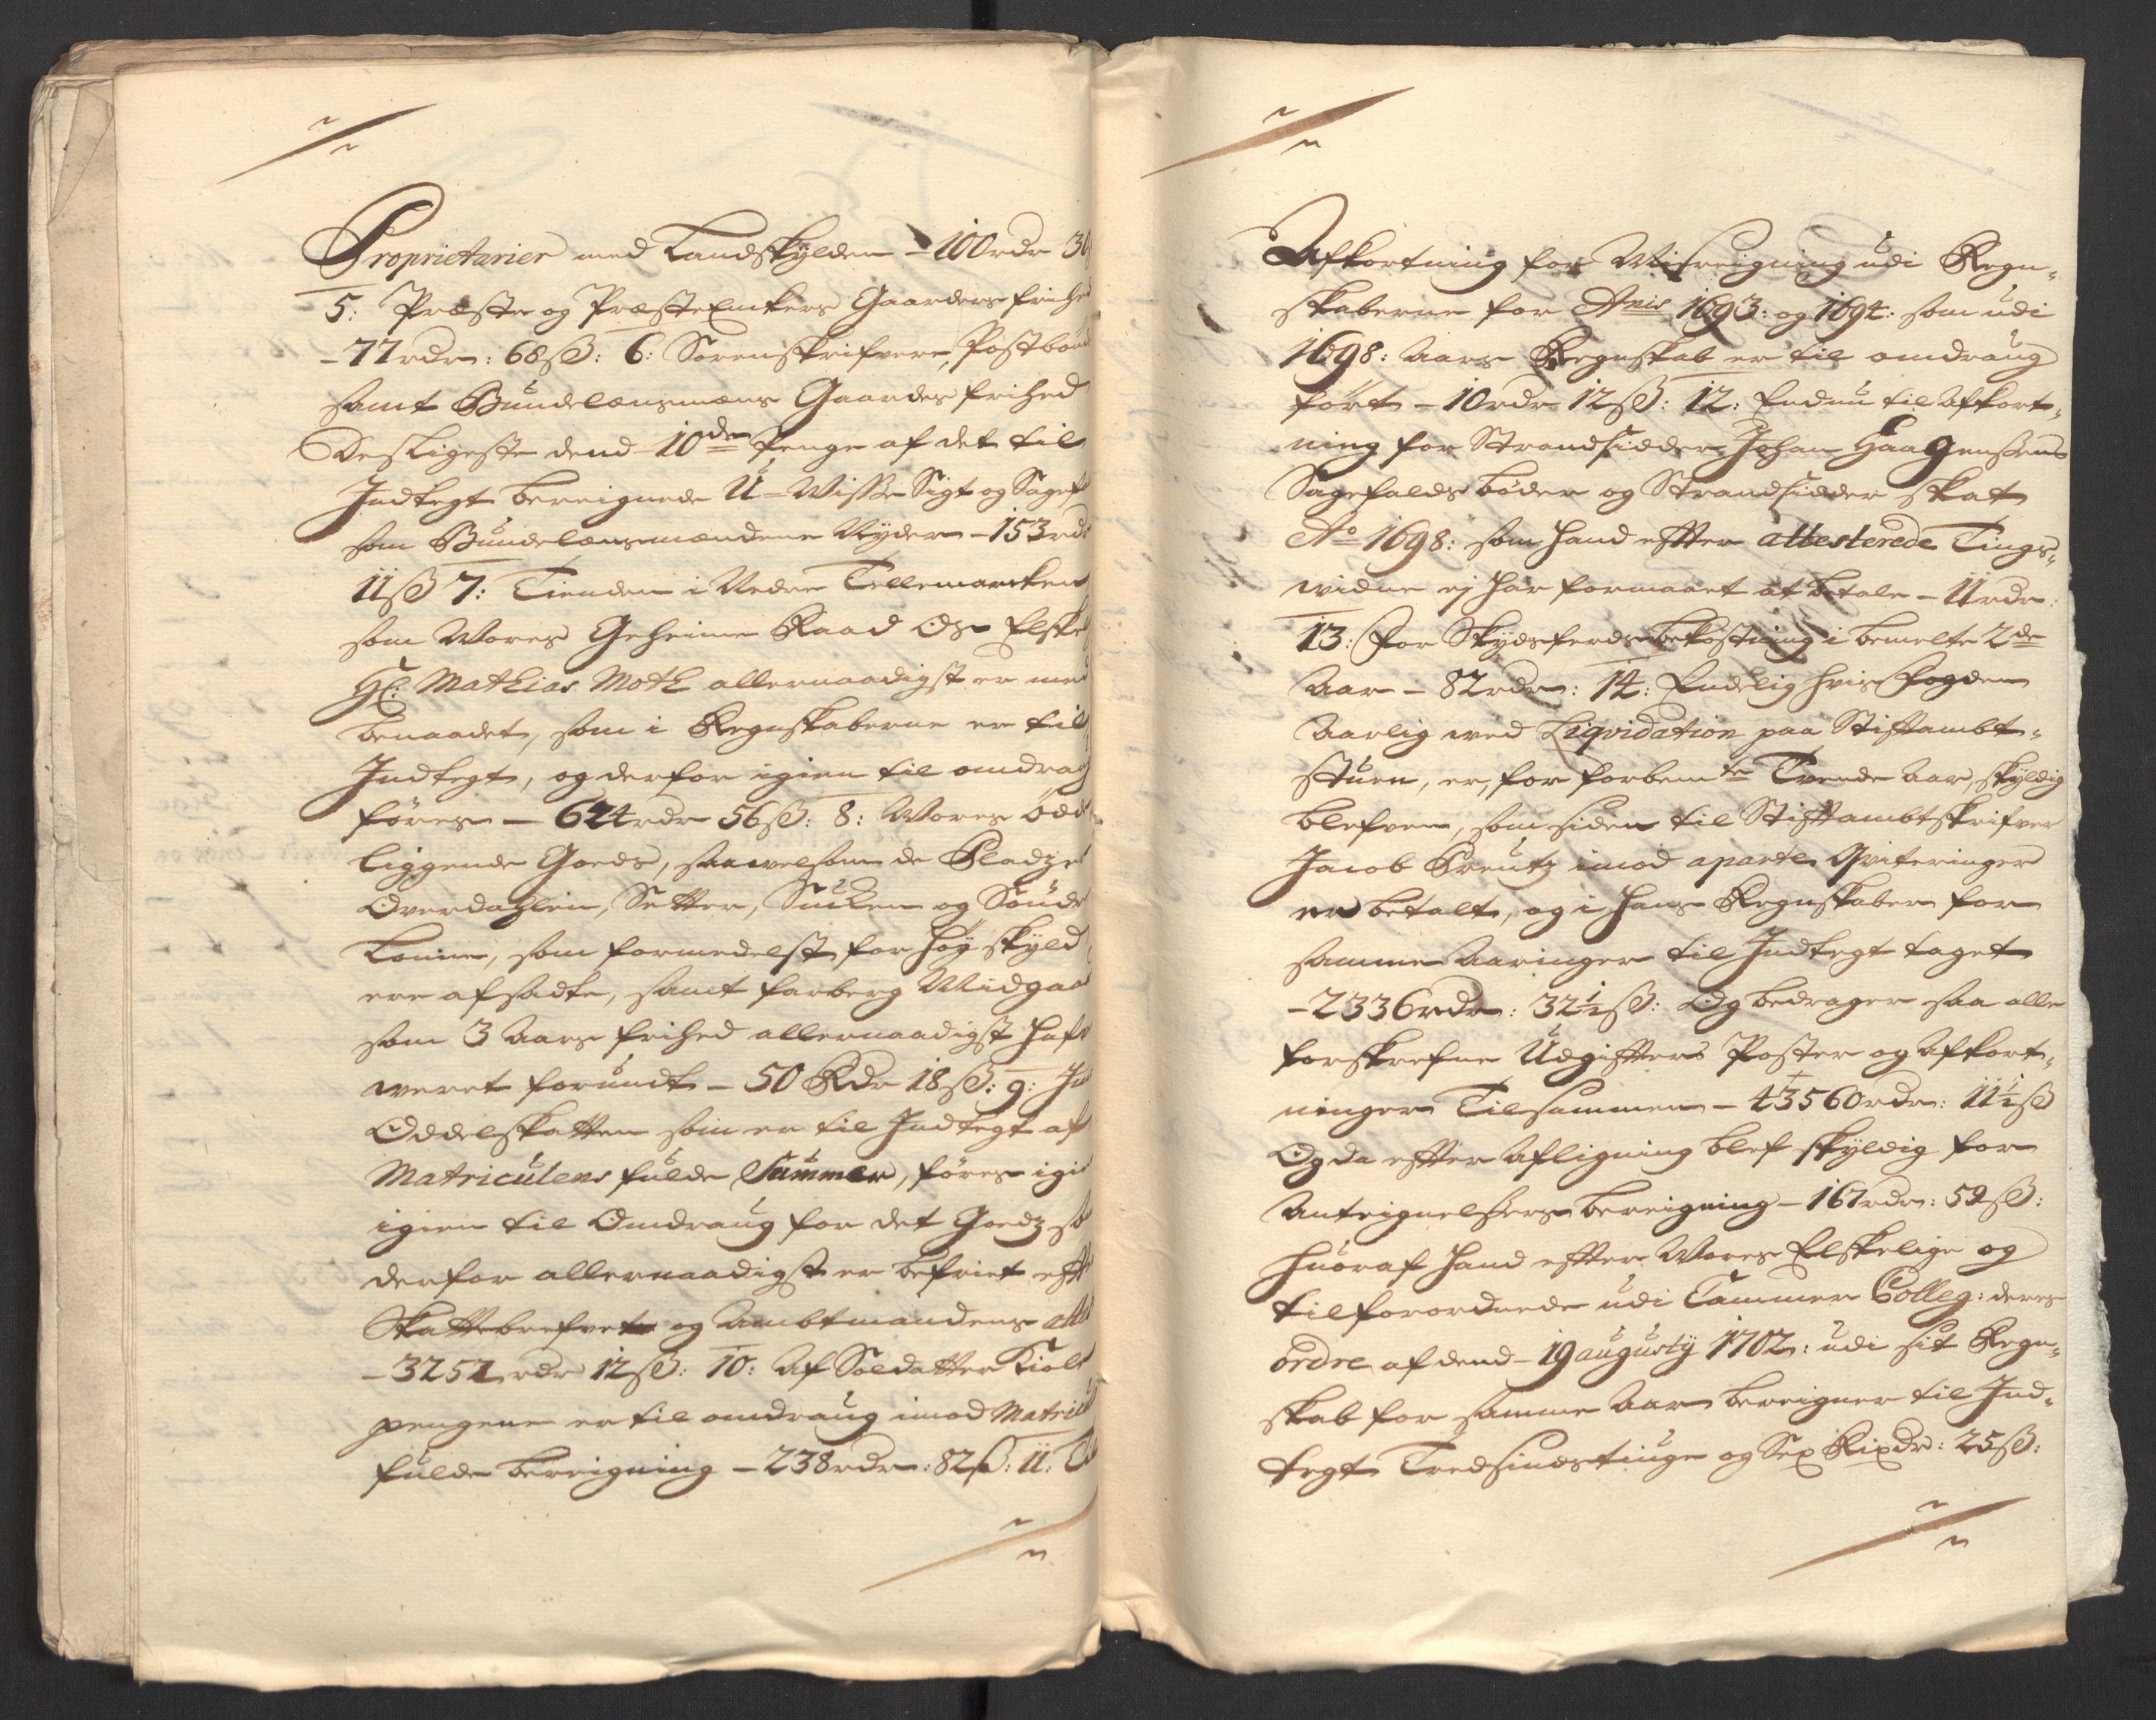 Proprietarier med Landskylden – 100 rdr 36
5: Præste og Præste Enkers Gaarders frihed
– 77 rdr: 68 ß: 6: Sorenskrifvere, Postbønd
samt Bundelænsmæns Gaarders frihed
Desligeste dend 10de Penge af det til
Indtegt bereignede U-Wisse Sigt og Sagef
som Bundelænsmændene Nyder – 153 rdr
11 ß 7: Tienden i Nedre Tellemarcken
som Wores Geheime Raad Os Elskel
Hl: Mathias Moth allernaadigst er med
benaadet, som i Regnskaberne er til
Indtegt, og derfor igien til omdrag
føres – 624 rdr 56 ß: 8: Wores Øde
liggende Goeds, saavelsom de Pladzer
Overdahlen, Setter, og Sønde
Lonne, som formedelst for høy skyld
ere afsadte, samt farberg Midgaar
som 3 Aars frihed allernaadigst hafv
weret forundt – 50 Rdr 18 ß: 9: I
Oddelskatten som er til Indtegt af
Matriculens fulde Summer, føres igi
igien til Omdraug for det Goedz so
derfor allernaadigst er befriet effte
Skattebrefvet og Ambtmandens atte
– 3251 rdr 12 ß: 10: Af Soldatter Kiole
pengene er til omdraug imod Matricul
fulde bereigning – 238 rdr: 82 ß: 11:
Afkortning for Misreigning udi Regn-
skaberne for Anis 1693: og 1694: som udi
1698: Aars Regnskab er til omdraug
ført – 10 rdr 12 ß: 12: Endnu til Afkort-
ning for Strandsidder Johan Haagenssens
Sagefalds bøder og Strandsidder skat
Ao 1698: som hand effter attesterede Tings-
widne ej har formaaet at betale – 11 rdr:
13: For Skydsferds bekostning i bemelte 2de
Aar – 82 rdr: 14: Endelig hvis Fogden
Aarlig ved Liqvidation paa Stiftambt-
stuen, er, for forbemte Tvende Aar, skyldig
blefven, som siden til Stifftambtskrifver
Jacob Kreutz imod aparte Qviteringer
er betalt, og i hans Regnskaber for
samme Aaringer til Indtegt taget
– 2336 rdr: 32½ ß: Og bedrager saa alle
forskrefne Udgiffters Poster og Afkort-
ninger Tilsammen – 43560 rdr: 11½ ß
Og da effter Afligning blef skyldig for
Antegnelsers bereigning – 167 rdr: 52 ß:
huoraf hand effter Wores Elskelige og
tilforordnede udi Cammer Colleg: deres
ordre af dend 19 augusty 1702: udi sit Regn-
skab for samme Aar bereigner til Ind-
tegt Tredsindstiuge og Sex Rixdr: 25 ß: